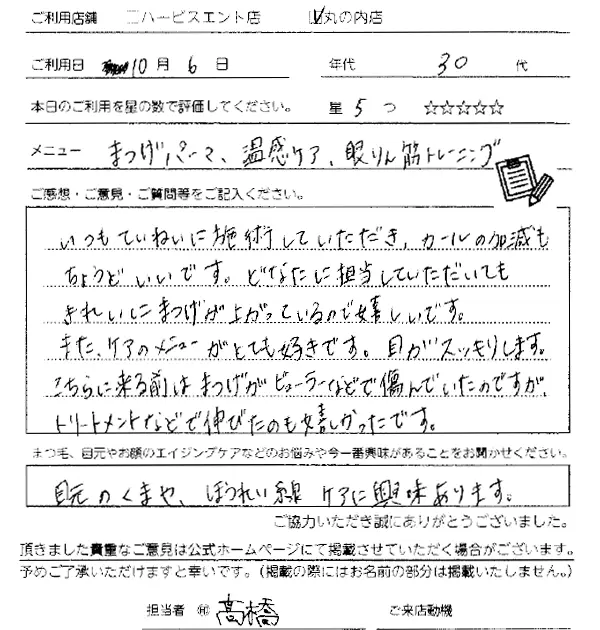 ご利用店舗 □ハービスエント店 ☑丸の内店
ご利用日 10月 6日 年代 30 代
本日のご利用を星の数で評価してください。 星 5 つ ☆☆☆☆☆
メニュー まつげパーマ、温感ケア、眼りん筋トレーニング
ご感想・ご意見・ご質問等をご記入ください。
いつもていねいに施術していただき、カールの加減も
ちょうどいいです。どなたに担当していただいても
きれいにまつげが上がっているので嬉しいです。
また、ケアのメニューがとても好きです。目がスッキリします。
こちらに来る前はまつげがビューラーなどで傷んでいたのですが、
トリートメントなどで伸びたのも嬉しかったです。
まつ毛、目元やお顔のエイジングケアなどのお悩みや今一番興味があることをお聞かせください。
目元のくまや、ほうれい線ケアに興味あります。
ご協力いただき誠にありがとうございました。
頂きました貴重なご意見は公式ホームページにて掲載させていただく場合がございます。
予めご了承いただけますと幸いです。(掲載の際にはお名前の部分は掲載いたしません。)
担当者 ㊞ 高橋 ご来店動機